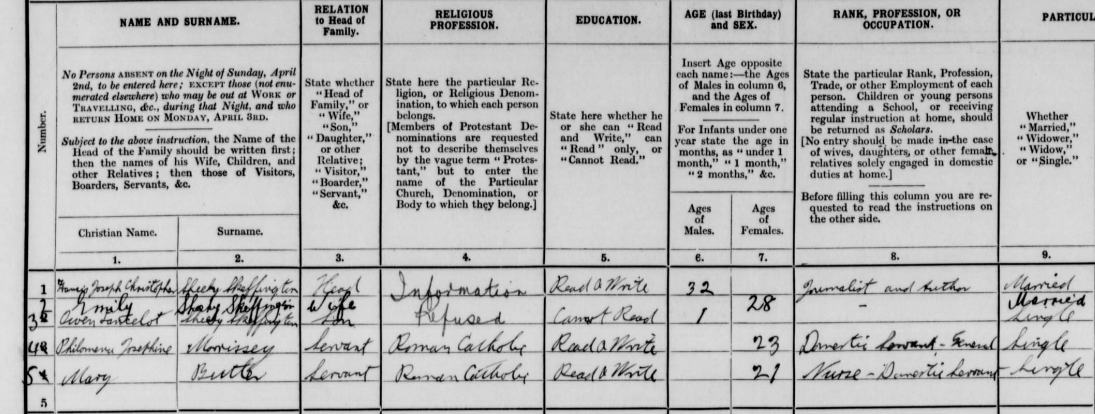 NAME AND SURNAME.
RELATION to Head of Family.
RELIGIOUS PROFESSION.
EDUCATION.
AGE (last Birthday) and SEX.
RANK, PROFESSION, OR OCCUPATION.
PARTICUL
Number.
No Persons ABSENT on the Night of Sunday, April
2nd, to be entered here; EXCEPT those (not enu-
merated elsewhere) who may be out at WORK or
TRAVELLING, &c., during that Night, and who
RETURN HOME ON MONDAY, APRIL 3RD.
Subject to the above instruction, the Name of the
Head of the Family should be written first;
then the names of his Wife, Children, and
other Relatives; then those of Visitors,
Boarders, Servants, &c.
State whether
"Head of
Family," or
"Wife,"
"Son,"
"Daughter,"
or other
Relative;
"Visitor,"
"Boarder,"
"Servant,"
&c.
State here the particular Re-
ligion, or Religious Denom-
ination, to which each person
belongs.
[Members of Protestant De-
nominations are requested
not to describe themselves
by the vague term "Protes-
tant," but to enter the
name of the Particular
Church, Denomination, or
Body to which they belong.]
State here whether he
or she can "Read
and Write," can
"Read" only, or
"Cannot Read."
Insert Age opposite
each name:—the Ages
of Males in column 6,
and the Ages of
Females in column 7.
For Infants under one
year state the age in
months, as "under 1
month," "1 month,"
"2 months," &c.
Ages of Males.
Ages of Females.
State the particular Rank, Profession,
Trade, or other Employment of each
person. Children or young persons
attending a School, or receiving
regular instruction at home, should
be returned as Scholars.
[No entry should be made in the case
of wives, daughters, or other female
relatives solely engaged in domestic
duties at home.]
Before filling this column you are re-
quested to read the instructions on
the other side.
Whether
"Married,"
"Widower,"
"Widow,"
or "Single."
Christian Name. Surname.
1. 2. 3. 4. 5. 6. 7. 8. 9.
1 Francis Joseph Christopher Sheehy Skeffington Head Information Read & Write 32 Journalist and Author Married
2 Emily Sheehy Skeffington Wife 28 – Married
3 Owen Lancelot Sheehy Skeffington Son Refused Cannot Read 1 Single
4 Philomena Josephine Morrissey Servant Roman Catholic Read & Write 23 Domestic Servant - General Single
5 Mary Butler Servant Roman Catholic Read & Write 21 Nurse - Domestic Servant Single
5